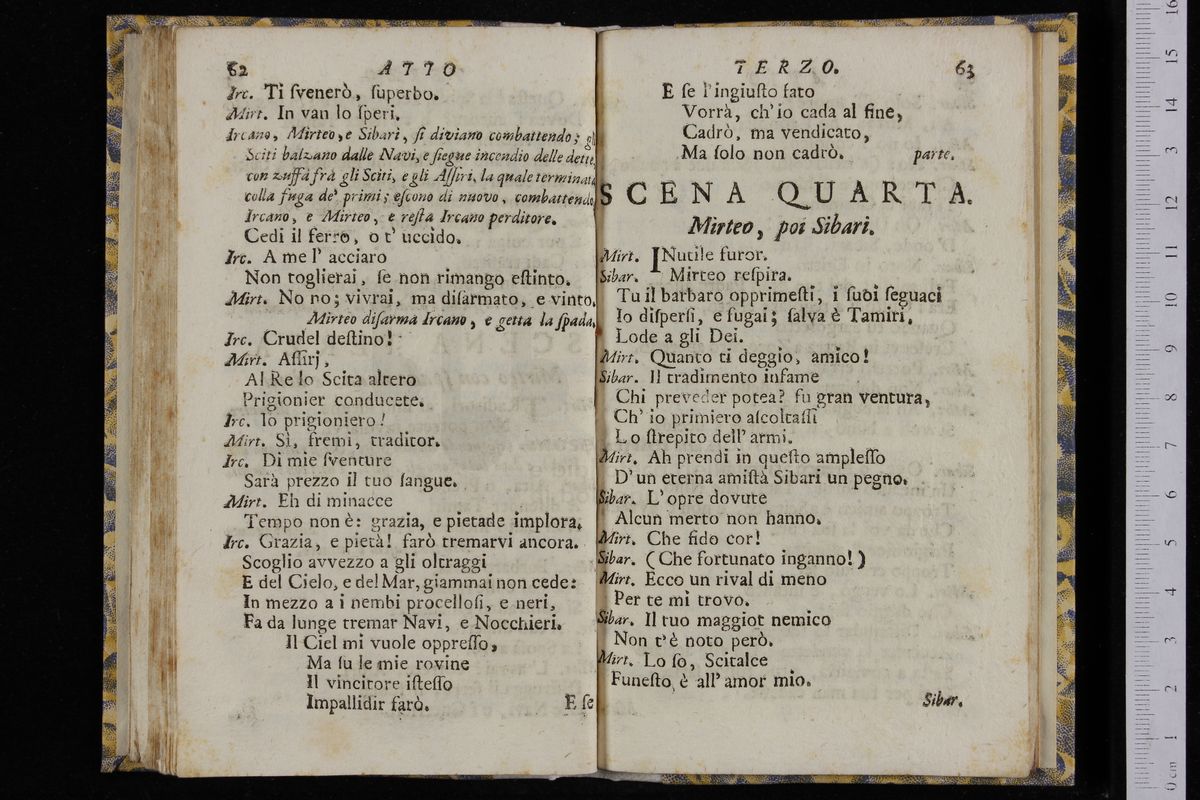 62 ATTO
Irc. Ti ſvenerò, ſuperbo.
Mirt. In van lo ſperi.
Ircano, Mirteo, e Sibari, ſi diviano combattendo; gli
Sciti balzano dalle Navi, e ſiegue incendio delle dette,
con zuffa frà gli Sciti, e gli Aſſiri, la quale terminata
colla fuga de' primi; eſcono di nuovo, combattendo,
Ircano, e Mirteo, e reſta Ircano perditore.
Cedi il ferro, o t' uccido.
Irc. A me l' acciaro
Non toglierai, ſe non rimango eſtinto.
Mirt. No no; vivrai, ma diſarmato, e vinto.
Mirteo diſarma Ircano, e getta la ſpada.
Irc. Crudel deſtino!
Mirt. Aſſirj,
Al Re lo Scita altero
Prigionier conducete.
Irc. Io prigioniero!
Mirt. Sì, fremi, traditor.
Irc. Di mie ſventure
Sarà prezzo il tuo ſangue.
Mirt. Eh di minacce
Tempo non è: grazia, e pietade implora.
Irc. Grazia, e pietà! farò tremarvi ancora.
Scoglio avvezzo a gli oltraggi
E del Cielo, e del Mar, giammai non cede:
In mezzo a i nembi procelloſi, e neri,
Fa da lunge tremar Navi, e Nocchieri.
Il Ciel mi vuole oppreſſo,
Ma ſu le mie rovine
Il vincitore iſteſſo
Impallidir farò.
E ſe
TERZO. 63
E ſe l'ingiuſto fato
Vorrà, ch'io cada al fine,
Cadrò, ma vendicato,
Ma ſolo non cadrò. parte.
SCENA QUARTA.
Mirteo, poi Sibari.
Mirt. INutile furor.
Sibar. Mirteo reſpira.
Tu il barbaro opprimeſti, i ſuoi ſeguaci
Io diſperſi, e fugai; ſalva è Tamiri.
Lode a gli Dei.
Mirt. Quanto ti deggio, amico!
Sibar. Il tradimento infame
Chi preveder potea? fu gran ventura,
Ch' io primiero aſcoltaſſi
Lo ſtrepito dell' armi.
Mirt. Ah prendi in queſto ampleſſo
D' un eterna amiſtà Sibari un pegno.
Sibar. L' opre dovute
Alcun merto non hanno.
Mirt. Che fido cor!
Sibar. (Che fortunato inganno!)
Mirt. Ecco un rival di meno
Per te mi trovo.
Sibar. Il tuo maggiot nemico
Non t'è noto però.
Mirt. Lo ſò, Scitalce
Funeſto è all' amor mio.
Sibar.
0 cm 1 2 3 4 5 6 7 8 9 10 11 12 13 14 15 16